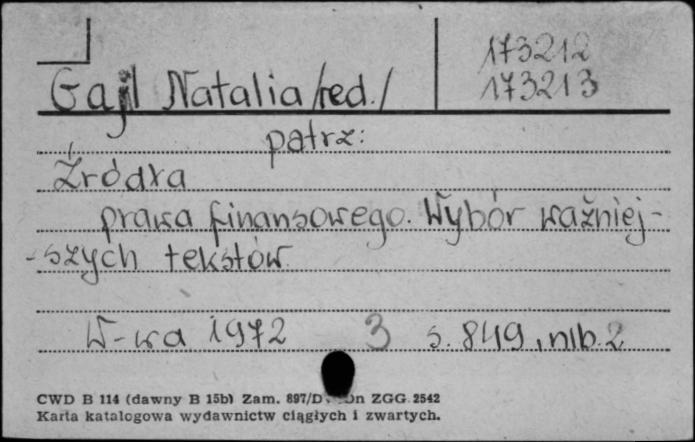 173212
Gajl Natalia /red./ 173213
patrz:
Źródła
prawa finansowego. Wybór ważniej-
-szych tekstów.
W-wa 1972 3 s. 849, nlb. 2
CWD B 114 (dawny B 15b) Zam. 897/D ZGG 2542
Karta katalogowa wydawnictw ciągłych i zwartych.